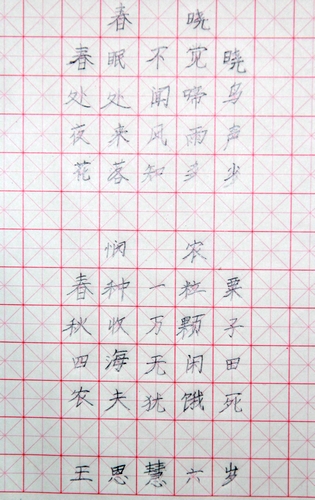 春晓
春眠不觉晓
处处闻啼鸟
夜来风雨声
花落知多少
悯农
春种一粒粟
秋收万颗子
四海无闲田
农夫犹饿死
王思慧六岁